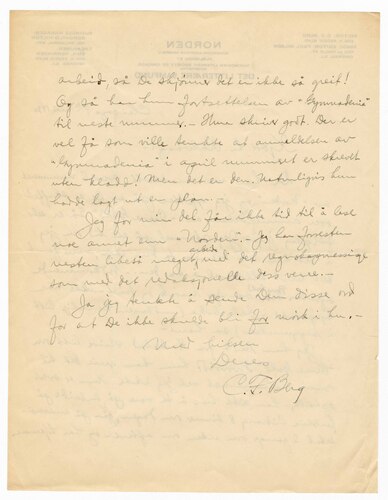 arbeid, så De skjønner det er ikke så greit!
Og så har hun fortsettelsen av "Gymnadenia"
til neste nummer. - Hun skriver godt. Der er
vel få som ville tenkte at anmeldelsen av
"Gymnadenia" i april nummeret er skrevet
uten kladd! Men det er den. Naturligvis hun
hadde lagt ut en plan. -
Jeg for min del får ikke tid til å lese
noe annet enn "Norden". - Jeg har forresten
nesten likeså meget arbeide med det regnskapsmessige
som med det redaksjonelle dess verre. -
Ja jeg tenkte å sende Dem disse ord
for at De ikke skulde bli for mörk i hu. -
Med hilsen
Deres
C. F. Berg
NORDEN